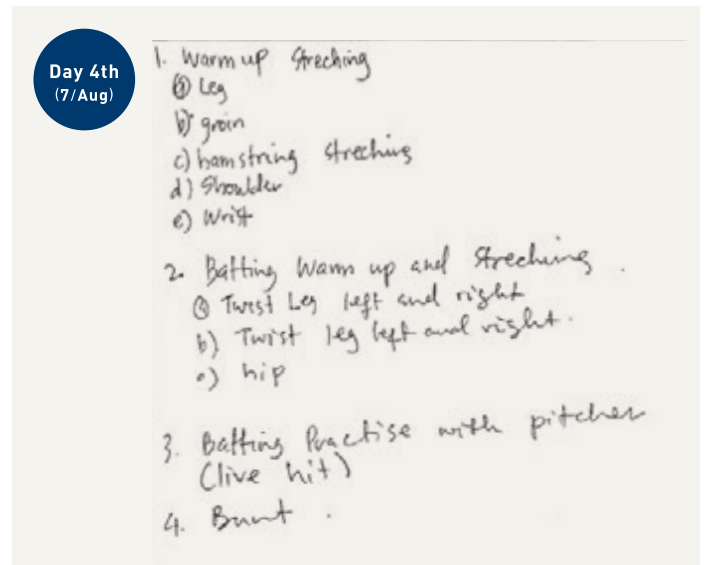 Day 4th
(7/Aug)
1. Warm up Streching
a) Leg
b) groin
c) hamstring streching
d) Shoulder
e) Wrist
2. Batting Warm up and Streching.
a) Twist Leg left and right
b) Twist leg left and right.
c) hip
3. Batting Practise with pitcher
(live hit)
4. Bunt.